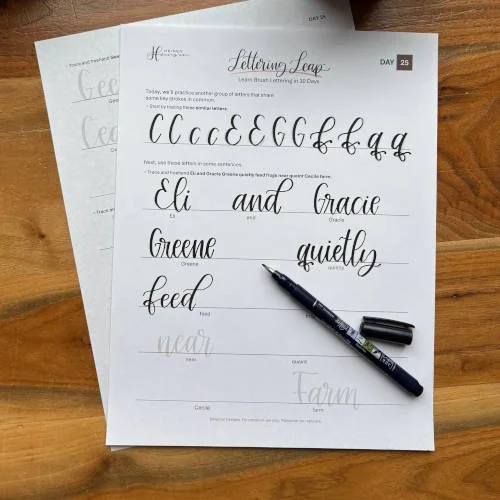 Lettering Leap
DAY 25
Learn Brush Lettering in 30 Days
Today, we'll practice another group of letters that share
some key strokes in common.
• Start by tracing these similar letters:
C C c c E E G G f f q q
Next, use these letters in some sentences.
• Trace and freehand Eli and Gracie Greene quietly feed frogs near quaint Cecile Farm.
Eli and Gracie
Eli and Gracie
Greene quietly
Greene quietly
feed
feed
near
near quaint
Farm
Cecile farm